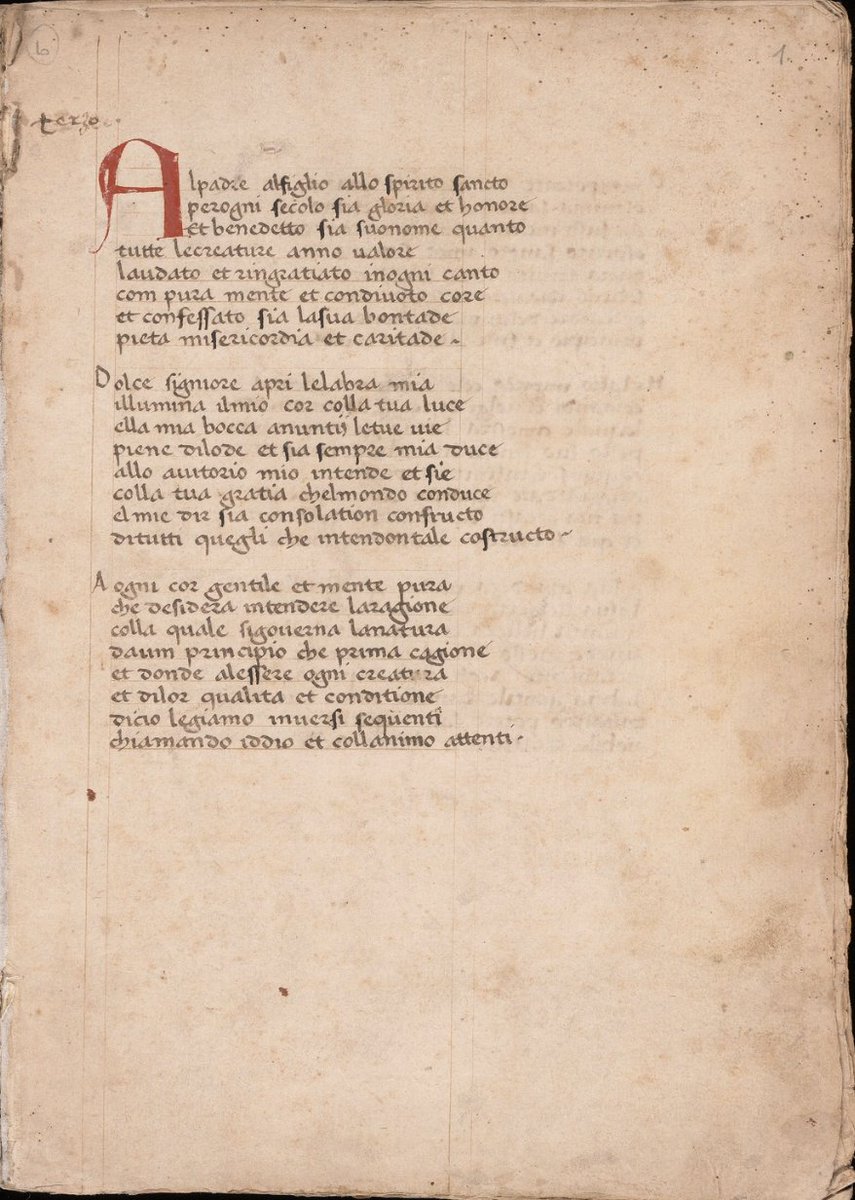 6
1.
terzo
Alpadre alfiglio allo spirito sancto
perogni secolo sia gloria et honore
Et benedetto sia suonome quanto
tutte lecreature anno valore
laudato et ringratiato inogni canto
com pura mente et condiuoto core
et confessato sia lasua bontade
pieta misericordia et caritade .
Dolce signiore apri lelabra mia
illumina ilmio cor colla tua luce
ella mia bocca anuntij letue uie
piene dilode et sia sempre mia duce
allo auitorio mio intende et sie
colla tua gratia chelmondo conduce
el mie dir sia consolation confructo
ditutti quegli che intendontale costructo
A ogni cor gentile et mente pura
che desidera intendere laragione
colla quale sigouerna lanatura
daum principio che prima cagione
et donde alessere ogni creatura
et dilor qualita et conditione
dicio legiamo inuersi sequenti
chiamando iddio et collanimo attenti .